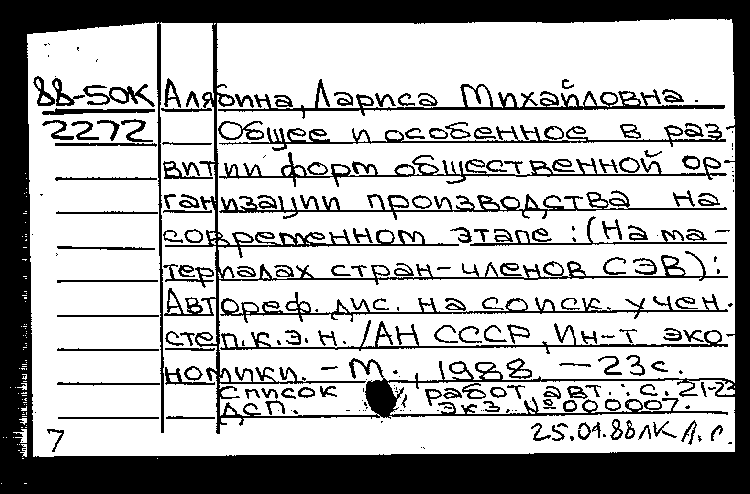 88-50К Алябина, Лариса Михайловна.
2272 Общее и особенное в раз-
витии форм общественной ор-
ганизации производства на
современном этапе : (На ма-
териалах стран-членов СЭВ) :
Автореф. дис. на соиск. учен.
степ. к. э. н. / АН СССР, Ин-т эко-
номики. - М., 1988. - 23 с.
Список работ авт.: с. 21-23
ДСП. Экз. № 000007.
7 25.01.88 ЛК А. С.